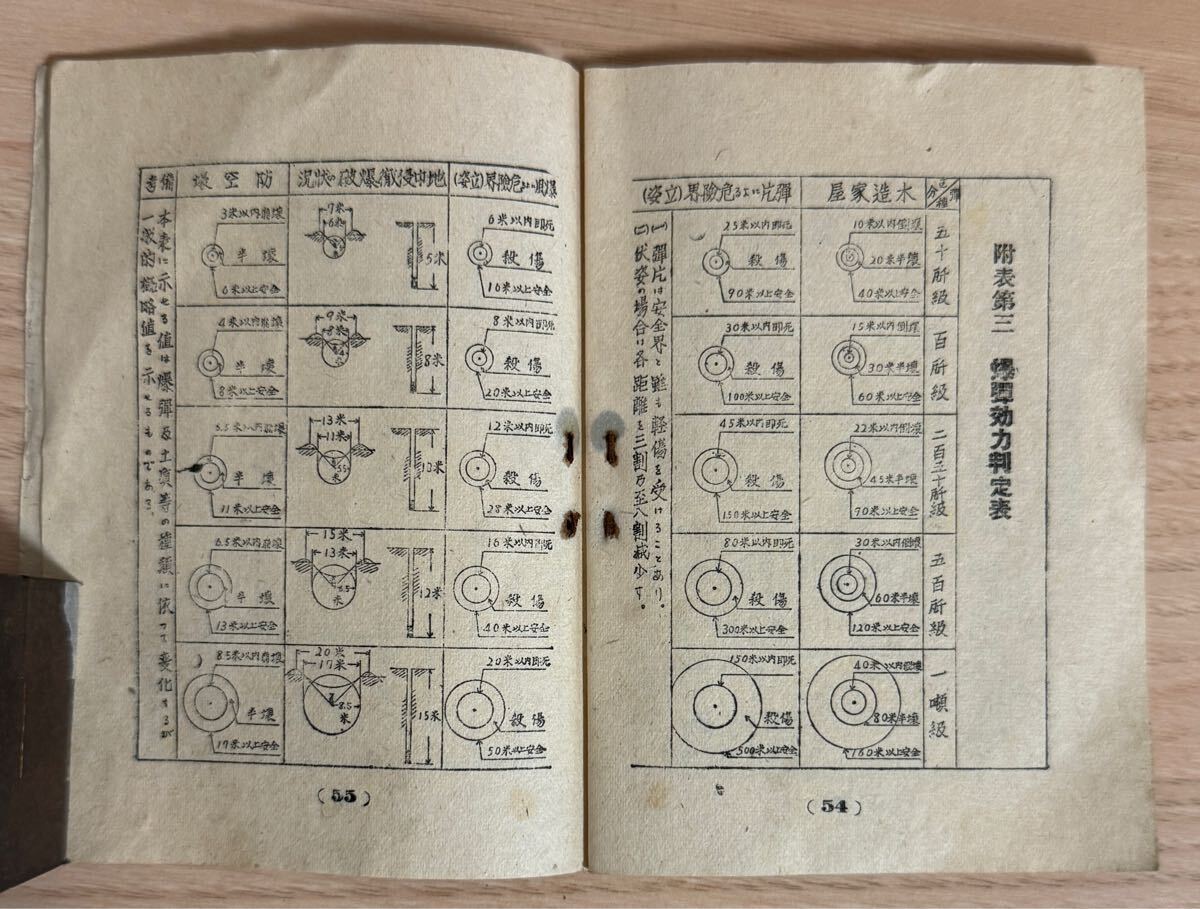 附表第三 爆彈効力判定表
區分 彈種
五十瓩級
百瓩級
二百五十瓩級
五百瓩級
一噸級
木造家屋
10米以内倒壞
20米半壞
40米以上安全
15米以内倒壞
30米半壞
60米以上安全
22米以内倒壞
45米半壞
90米以上安全
30米以内倒壞
60米半壞
120米以上安全
40米以内倒壞
80米半壞
160米以上安全
彈片による危險界(立姿)
25米以内即死
殺傷
90米以上安全
30米以内即死
殺傷
100米以上安全
45米以内即死
殺傷
150米以上安全
80米以内即死
殺傷
300米以上安全
150米以内即死
殺傷
500米以上安全
(一)彈片は安全界と雖も軽傷を受けることあり。
(二)伏姿の場合は各距離を三割乃至八割減少す。
(54)
爆風による危險界(立姿)
6米以内即死
殺傷
10米以上安全
8米以内即死
殺傷
20米以上安全
12米以内即死
殺傷
28米以上安全
16米以内即死
殺傷
40米以上安全
20米以内即死
殺傷
50米以上安全
地中侵徹爆破の狀況
7米
6米
5米
9米
8米
8米
13米
11米
5.5米
10米
15米
13米
6.5米
12米
20米
17米
8.5米
15米
防空壕
3米以内崩壞
半壞
6米以上安全
4米以内崩壞
半壞
8米以上安全
5.5米以内崩壞
半壞
11米以上安全
6.5米以内崩壞
半壞
13米以上安全
8.5米以内崩壞
半壞
17米以上安全
備考
本表に示せる値は爆彈及土質等の種類に依つて変化するが
一般的概略値を示せるものである。
(55)